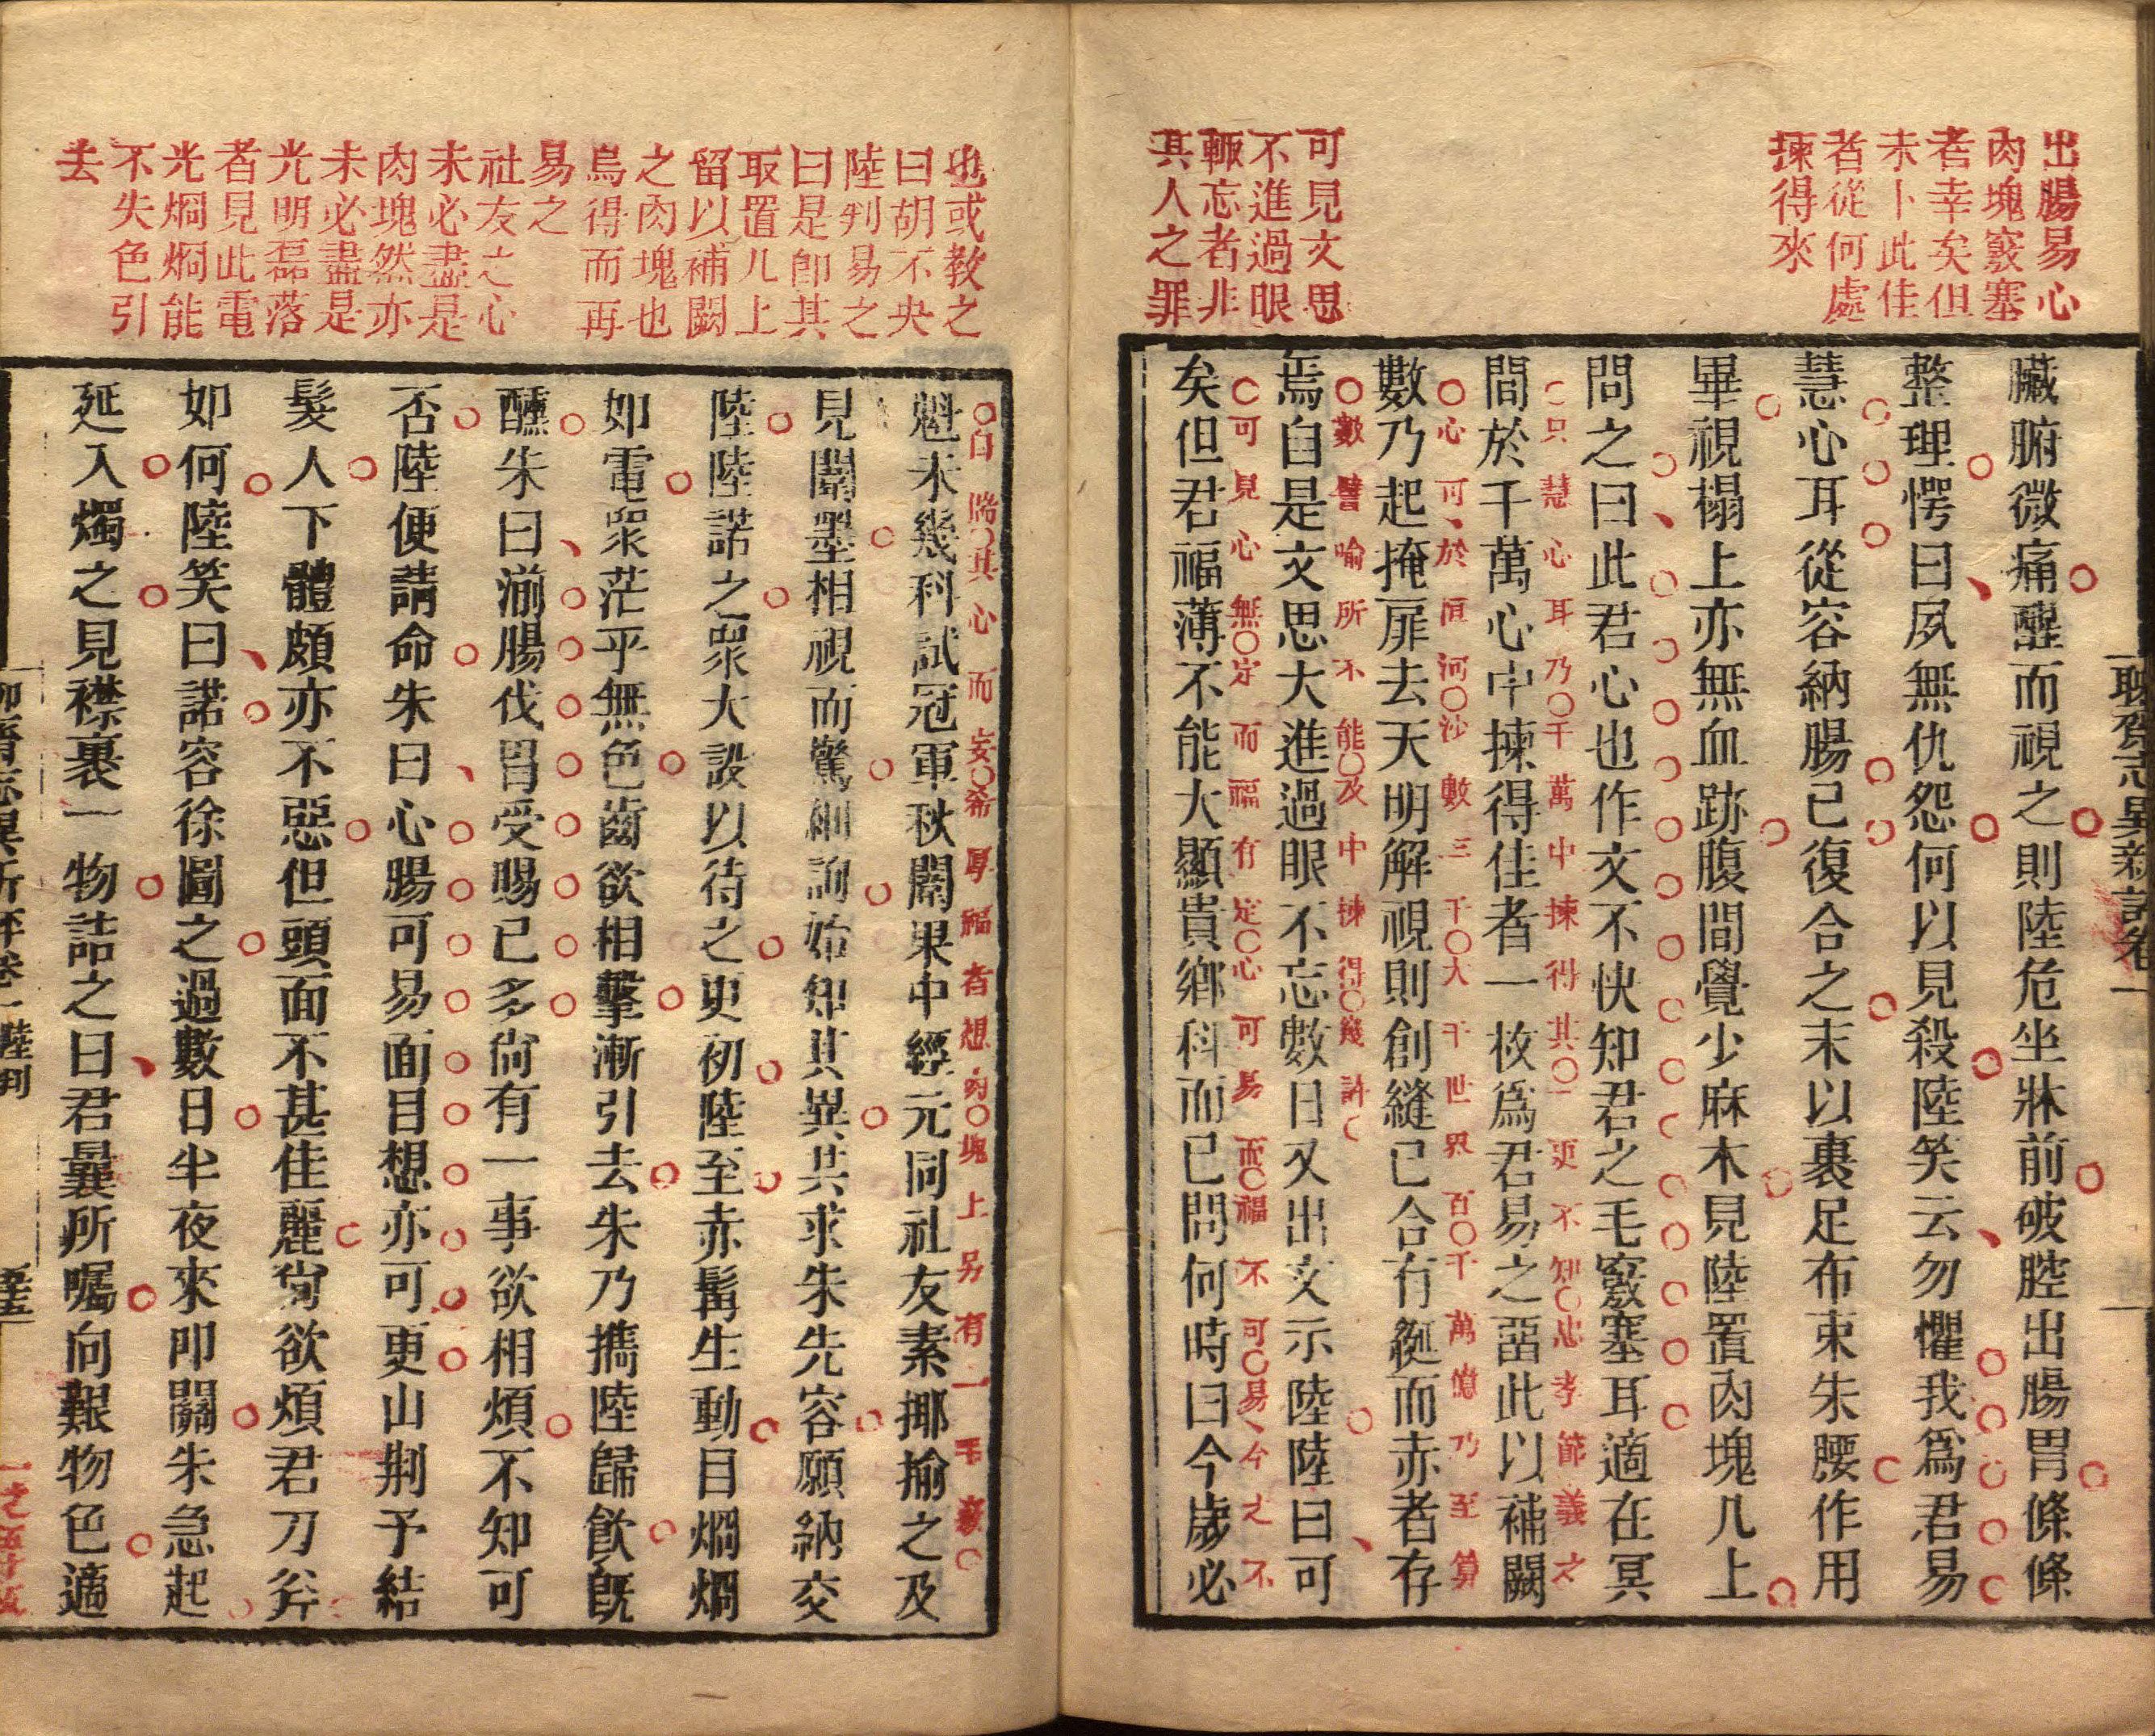 聊齋志異新評卷一
出腸易心
肉塊竅塞
者幸矣但
未卜此佳
者從何處
揀得來
可見文思
不進過眼
輙忘者非
其人之罪
臟腑微痛醒而視之則陸危坐牀前破腔出腸胃條條
整理愕曰夙無仇怨何以見殺陸笑云勿懼我爲君易
慧心耳從容納腸已復合之末以裹足布束朱腰作用
畢視榻上亦無血跡腹間覺少麻木見陸置肉塊几上
問之曰此君心也作文不快知君之毛竅塞耳適在冥
只慧心耳乃千萬中揀得其一更不知忠孝節義之
間於千萬心中揀得佳者一枚爲君易之畱此以補闕
心可於恒河沙數三千大千世界百千萬億乃至算
數乃起掩扉去天明解視則創縫已合有綖而赤者存
數譬喻所不能及中揀得幾許
焉自是文思大進過眼不忘數日又出文示陸陸曰可
可見心無定而福有定心可易而福不可易今之不
矣但君福薄不能大顯貴鄉科而已問何時曰今歲必
也或教之
曰胡不央
陸判易之
曰是卽其
取置几上
留以補闕
之肉塊也
烏得而再
易之
社友之心
未必盡是
肉塊然亦
未必盡是
光明磊落
者見此電
光烱烱能
不失色引
去
自揣其心而妄希厚福者想肉塊上另有一毛竅
魁未幾科試冠軍秋闈果中經元同社友素揶揄之及
見闈墨相視而驚細詢始知其異共求朱先容願納交
陸陸諾之眾大設以待之更初陸至赤髯生動目烱烱
如電眾茫乎無色齒欲相擊漸引去朱乃攜陸歸飲旣
醺朱曰湔腸伐胃受賜已多尙有一事欲相煩不知可
否陸便請命朱曰心腸可易面目想亦可更山荆予結
髮人下體頗亦不惡但頭面不甚佳麗尙欲煩君刀斧
如何陸笑曰諾容徐圖之過數日半夜來叩關朱急起
延入燭之見襟裹一物詰之曰君曩所囑向艱物色適
聊齋志異新評卷一 陸判